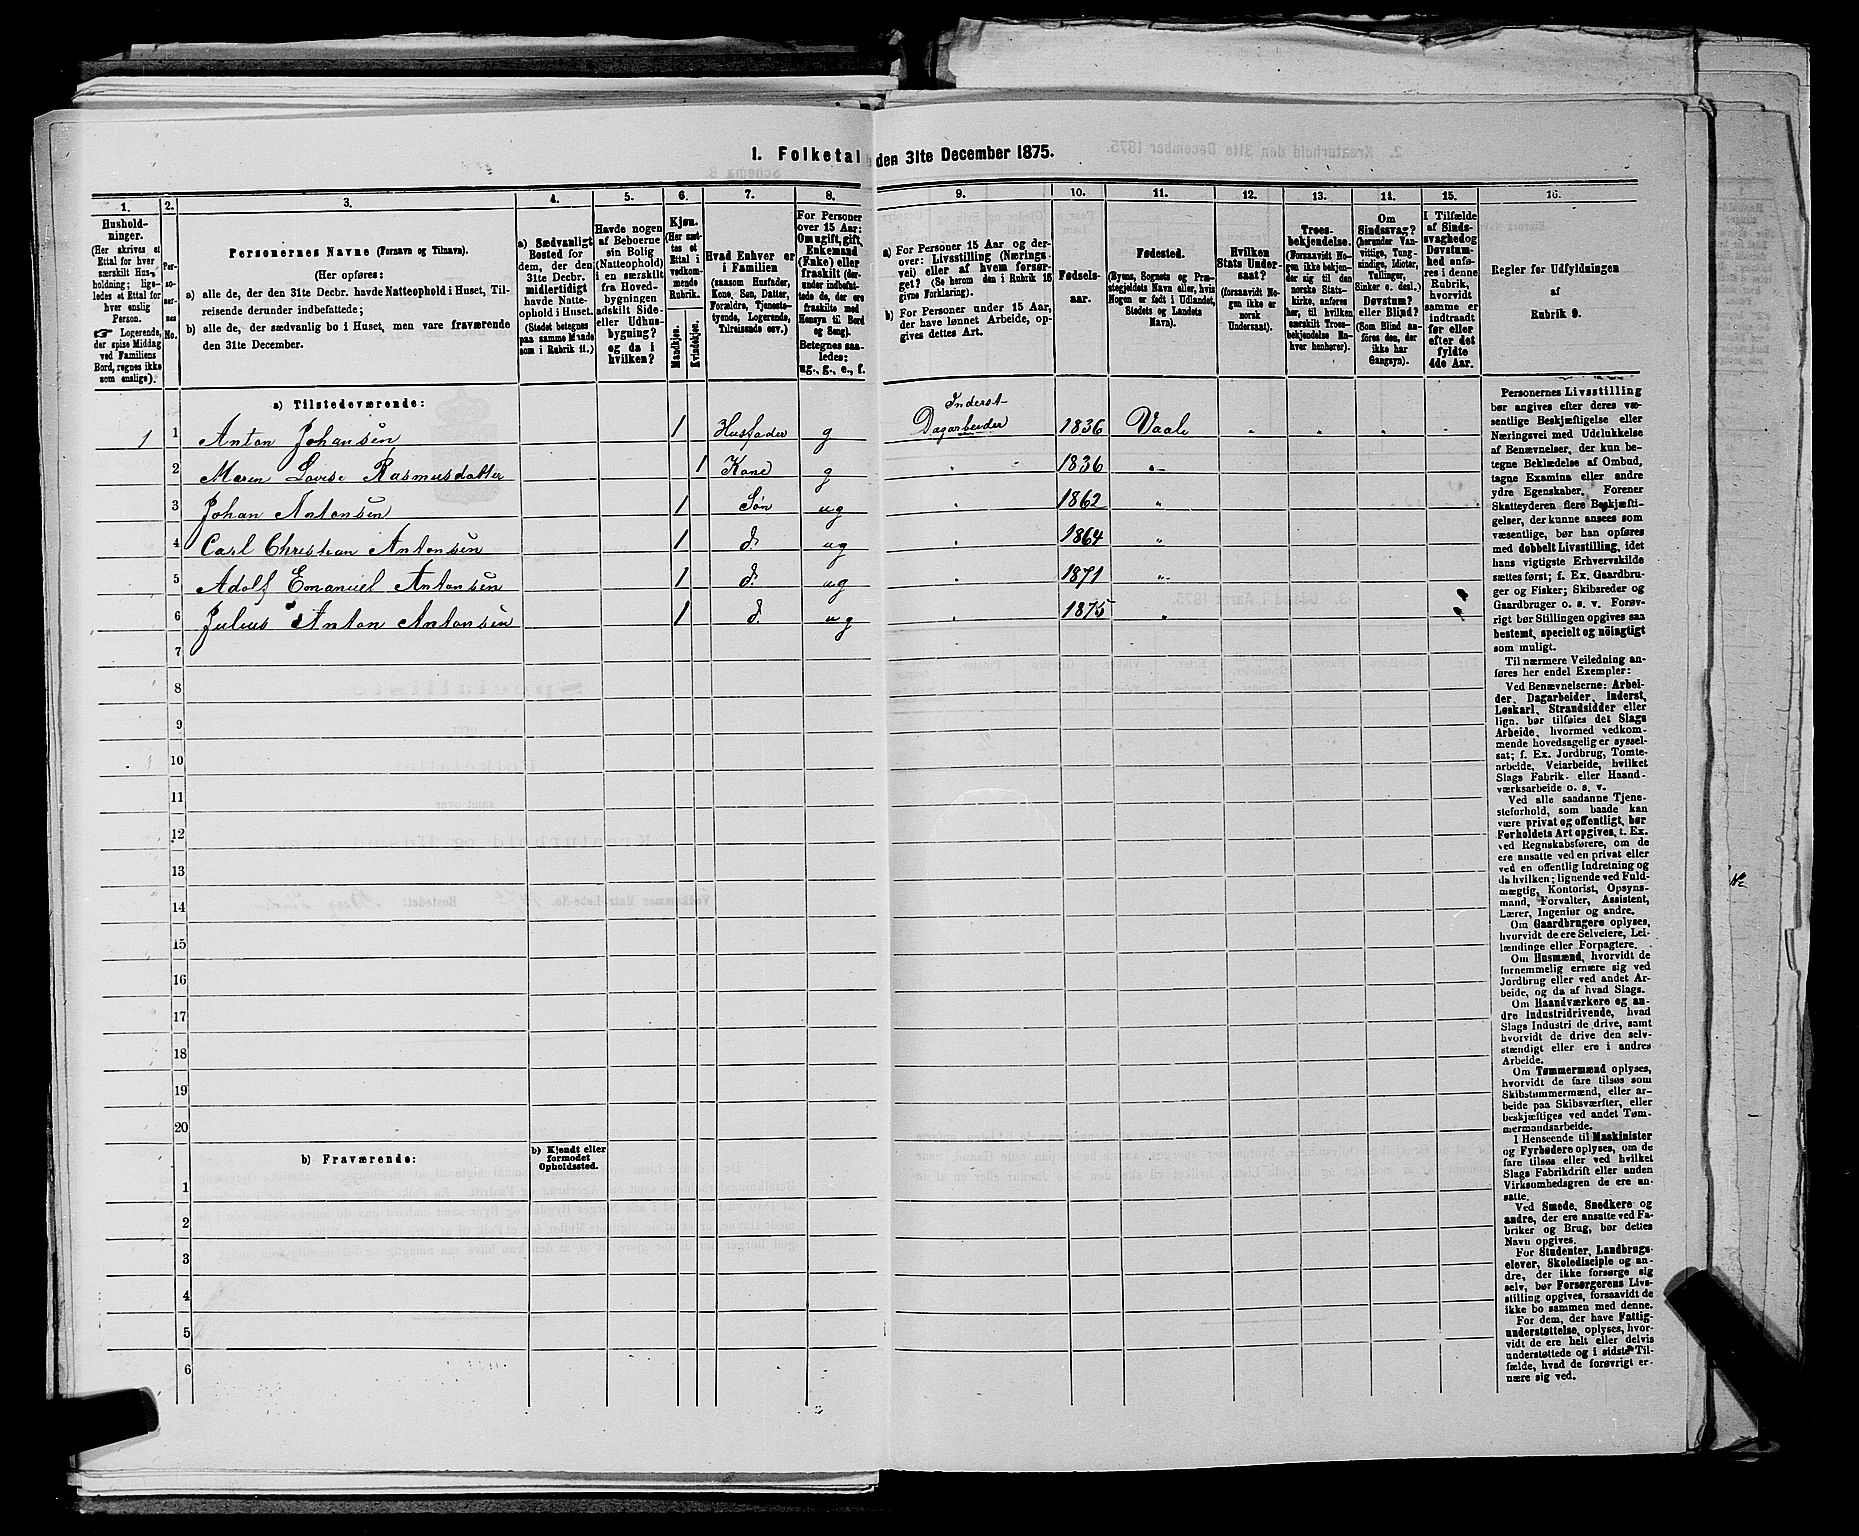 1. Folketal den 31te December 1875.
1. 2. 3. 4. 5. 6. 7. 8. 9. 10. 11. 12. 13. 14. 15. 16.
Hushold-
ninger.
(Her skrives et
Ettal for hver
særskilt Hus-
holdning; lige-
ledes et Ettal for
hver enslig
Person.
☞ Logerende,
der spise Middag
ved Familiens
Bord, regnes ikke
som enslige).
Per-
so-
ner-
nes
No.
Personernes Navne (Fornavn og Tilnavn).
(Her opføres:
a) alle de, der den 31te Decbr. havde Natteophold i Huset, Til-
reisende derunder indbefattede;
b) alle de, der sædvanlig bo i Huset, men vare fraværende
den 31te December.
a) Sædvanligt
Bosted for
dem, der den
31te Decbr.
midlertidigt
havde Natte-
ophold i Huset.
(Stedet betegnes
paa samme Maade
som i Rubrik 11.)
Havde nogen
af Beboerne
sin Bolig
(Natteophold)
i en særskilt
fra Hoved-
bygningen
adskilt Side-
eller Udhus-
bygning?
og da i
hvilken?
Kjøn.
(Her sæt-
tes et
Ettal i
vedkom-
mende
Rubrik.
Mandkjøn.
Kvindekjøn.
Hvad Enhver er
i Familien
(saasom Husfader,
Kone, Søn, Datter,
Forældre, Tjeneste-
tyende, Logerende,
Tilreisende osv.)
For Personer
over 15 Aar:
Om ugift, gift,
Enkemand
(Enke) eller
fraskilt (der-
under indbefat-
tede de, der ere
fraskilte med
Hensyn til Bord
og Seng).
Betegnes saa-
ledes:
ug., g., e., f.
a) For Personer 15 Aar og der-
over: Livsstilling (Nærings-
vei) eller af hvem forsør-
get? (Se herom den i Rubrik 16
givne Forklaring).
b) For Personer under 15 Aar,
der have lønnet Arbeide, op-
gives dettes Art.
Fødsels-
aar.
Fødested.
(Byens, Sognets og Præ-
stegjeldets Navn eller, hvis
Nogen er født i Udlandet,
Stedets og Landets
Navn).
Hvilken
Stats Under-
saat?
(forsaavidt No-
gen ikke er
norsk
Undersaat).
Troes-
bekjendelse.
(Forsaavidt No-
gen ikke bekjen-
der sig til den
norske Stats-
kirke, anføres
her, til hvilken
særskilt Troes-
bekjendelse En-
hver henhører).
Om
Sindssvag?
(herunder Van-
vittige, Tung-
sindige, Idioter,
Tullinger,
Sinker o. desl.)
Døvstum?
eller Blind?
(Som Blind an-
føres den, der
ikke har
Gangsyn).
I Tilfælde
af Sinds-
svaghed og
Døvstum-
hed anfø-
res i denne
Rubrik,
hvorvidt
samme er
indtraadt
før eller
efter det
fyldte
4de Aar.
Regler for Udfyldningen
af
Rubrik 9.
a) Tilstedeværende:
1 1 Anton Johansen 1 Husfader g Inderst
Dagarbeider 1836 Vaale
2 Maren Lovise Rasmusdatter 1 Kone g 1836 "
3 Johan Antonsen 1 Søn ug 1862 "
4 Carl Christian Antonsen 1 d. ug 1864 "
5 Adolf Emanuel Antonsen 1 d. ug 1871 "
6 Julius Anton Antonsen 1 d. ug 1875 "
7
8
9
10
11
12
13
14
15
16
17
18
19
20
b) Fraværende:
b) Kjendt eller
formodet
Opholdssted.
1
2
3
4
5
6
Personernes Livsstilling
bør angives efter deres væ-
sentlige Beskjæftigelse eller
Næringsvei med Udelukkelse
af Benævnelser, der kun be-
tegne Beklædelse af Ombud,
tagne Examina eller andre
ydre Egenskaber. Forener
Skatteyderen flere Beskjæfti-
gelser, der kunne ansees som
væsentlige, bør han opføres
med dobbelt Livsstilling, idet
hans vigtigste Erhvervskilde
sættes først; f. Ex. Gaardbru-
ger og Fisker; Skibsreder og
Gaardbruger o. s. v. Forøv-
rigt bør Stillingen opgives saa
bestemt, specielt og nöiagtigt
som muligt.
Til nærmere Veiledning an-
føres her endel Exempler:
Ved Benævnelserne: Arbei-
der, Dagarbeider, Inderst,
Løskarl, Strandsidder eller
lign. bør tilføies det Slags
Arbeide, hvormed vedkom-
mende hovedsagelig er syssel-
sat; f. Ex. Jordbrug, Tomte-
arbeide, Veiarbeide, hvilket
Slags Fabrik- eller Haand-
værksarbeide o. s. v.
Ved alle saadanne Tjene-
steforhold, som baade kan
være privat og offentligt, bør
Forholdets Art opgives, t. Ex.
ved Regnskabsførere, om de
ere ansatte ved en privat eller
ved en offentlig Indretning og
da hvilken; lignende ved Fuld-
mægtig, Kontorist, Opsyns-
mand, Forvalter, Assistent,
Lærer, Ingeniør og andre.
Om Gaardbrugere oplyses,
hvorvidt de ere Selveiere, Lei-
lændinge eller Forpagtere.
Om Husmænd, hvorvidt de
fornemmelig ernære sig ved
Jordbrug eller ved andet Ar-
beide, og da af hvad Slags.
Om Haandværkere og an-
dre Industridrivende, hvad
Slags Industri de drive, samt
hvorvidt de drive den selv-
stændigt eller ere i andres
Arbeide.
Om Tømmermænd oplyses,
hvorvidt de fare tilsøs som
Skibstømmermænd, eller ar-
beide paa Skibsværfter, eller
beskjæftiges ved andet Tøm-
mermandsarbeide.
I Henseende til Maskinister
og Fyrbødere oplyses, om de
fare tilsøs eller ved hvilket
Slags Fabrikdrift eller anden
Virksomhedsgren de ere an-
satte.
Ved Smede, Snedkere og
andre, der ere ansatte ved Fa-
briker og Brug, bør dettes
Navn opgives.
For Studenter, Landbrugs-
elever, Skoledisciple og an-
dre, der ikke forsørge sig
selv, bør Forsørgerens Livs-
stilling opgives, forsaavidt de
ikke bo sammen med denne.
For dem, der have Fattig-
understøttelse, oplyses, hvor-
vidt de ere helt eller delvis
understøttede og i sidste Til-
fælde, hvad de forøvrigt er-
nære sig ved.